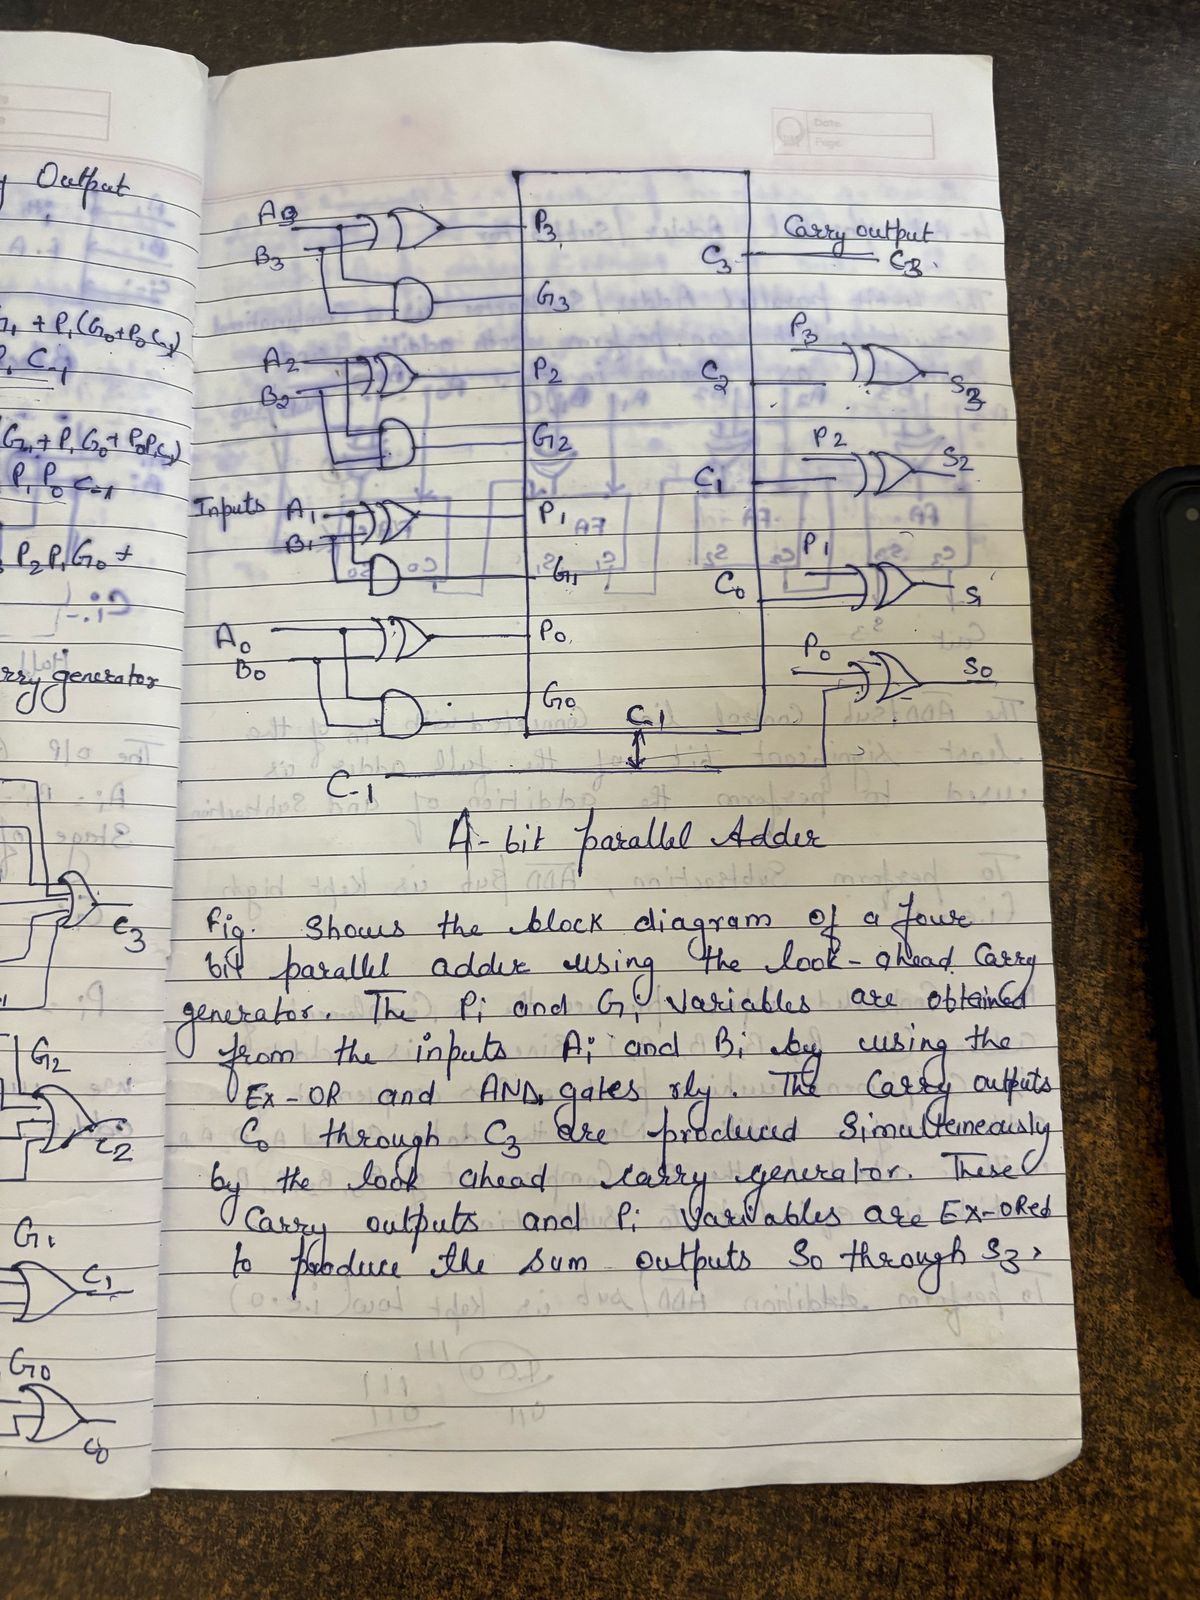 Output
+ P1(G0+P0C-1)
C-1
G1+P1G0+P0P1C-1)
P1 P0 C-1
P2P1G0 +
generator
C3
G2
C2
G1
C1
G0
C0
Date
Page
A3
B3
P3
G3
C3
Carry output
C3
A2
B2
P2
G2
C2
P3
S3
Inputs
A1
B1
P1
G1
C1
P2
S2
C0
P1
S1
A0
B0
P0
G0
P0
S0
C-1
C-1
4-bit parallel Adder
Fig. Shows the block diagram of a four
bit parallel adder using the look-ahead Carry
generator. The Pi and Gi variables are obtained
from the inputs Ai and Bi by using the
Ex-OR and AND gates rly. The Carry outputs
C0 through C3 are produced Simulteneously
by the look ahead carry generator. These
Carry outputs and Pi Variables are Ex-ORed
to produce the sum outputs S0 through S3,